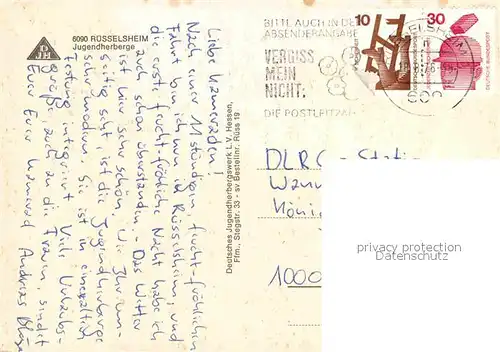 DJH
6090 RÜSSELSHEIM
Jugendherberge
Liebe Kameraden!
Nach einer 11 stündigen, feucht-fröhlichen
Fahrt bin ich nun in Rüsselsheim, und
die erste feucht-fröhliche Nacht habe ich
auch schon überstanden. Das Wetter
ist hier sehr schön. Wie Ihr
seitig seht, ist die Jugendherberge
sehr modern. Sie ist in eine alte
Festung integriert. Viele Urlaubs-
grüße, auch an die Frauen, sendet
Euer Kamerad Andreas
Deutsches Jugendherbergswerk L.V. Hessen,
Ffm., Stegstr. 33 - sv Bestellnr. Rüss 19
BITTE AUCH IN DE
ABSENDERANGABE
VERGISS
MEIN
NICHT:
DIE POSTLEITZA
10
30
DEUTSCHE BUNDESPOST
DLRG-
1000
privacy protection
Datenschutz